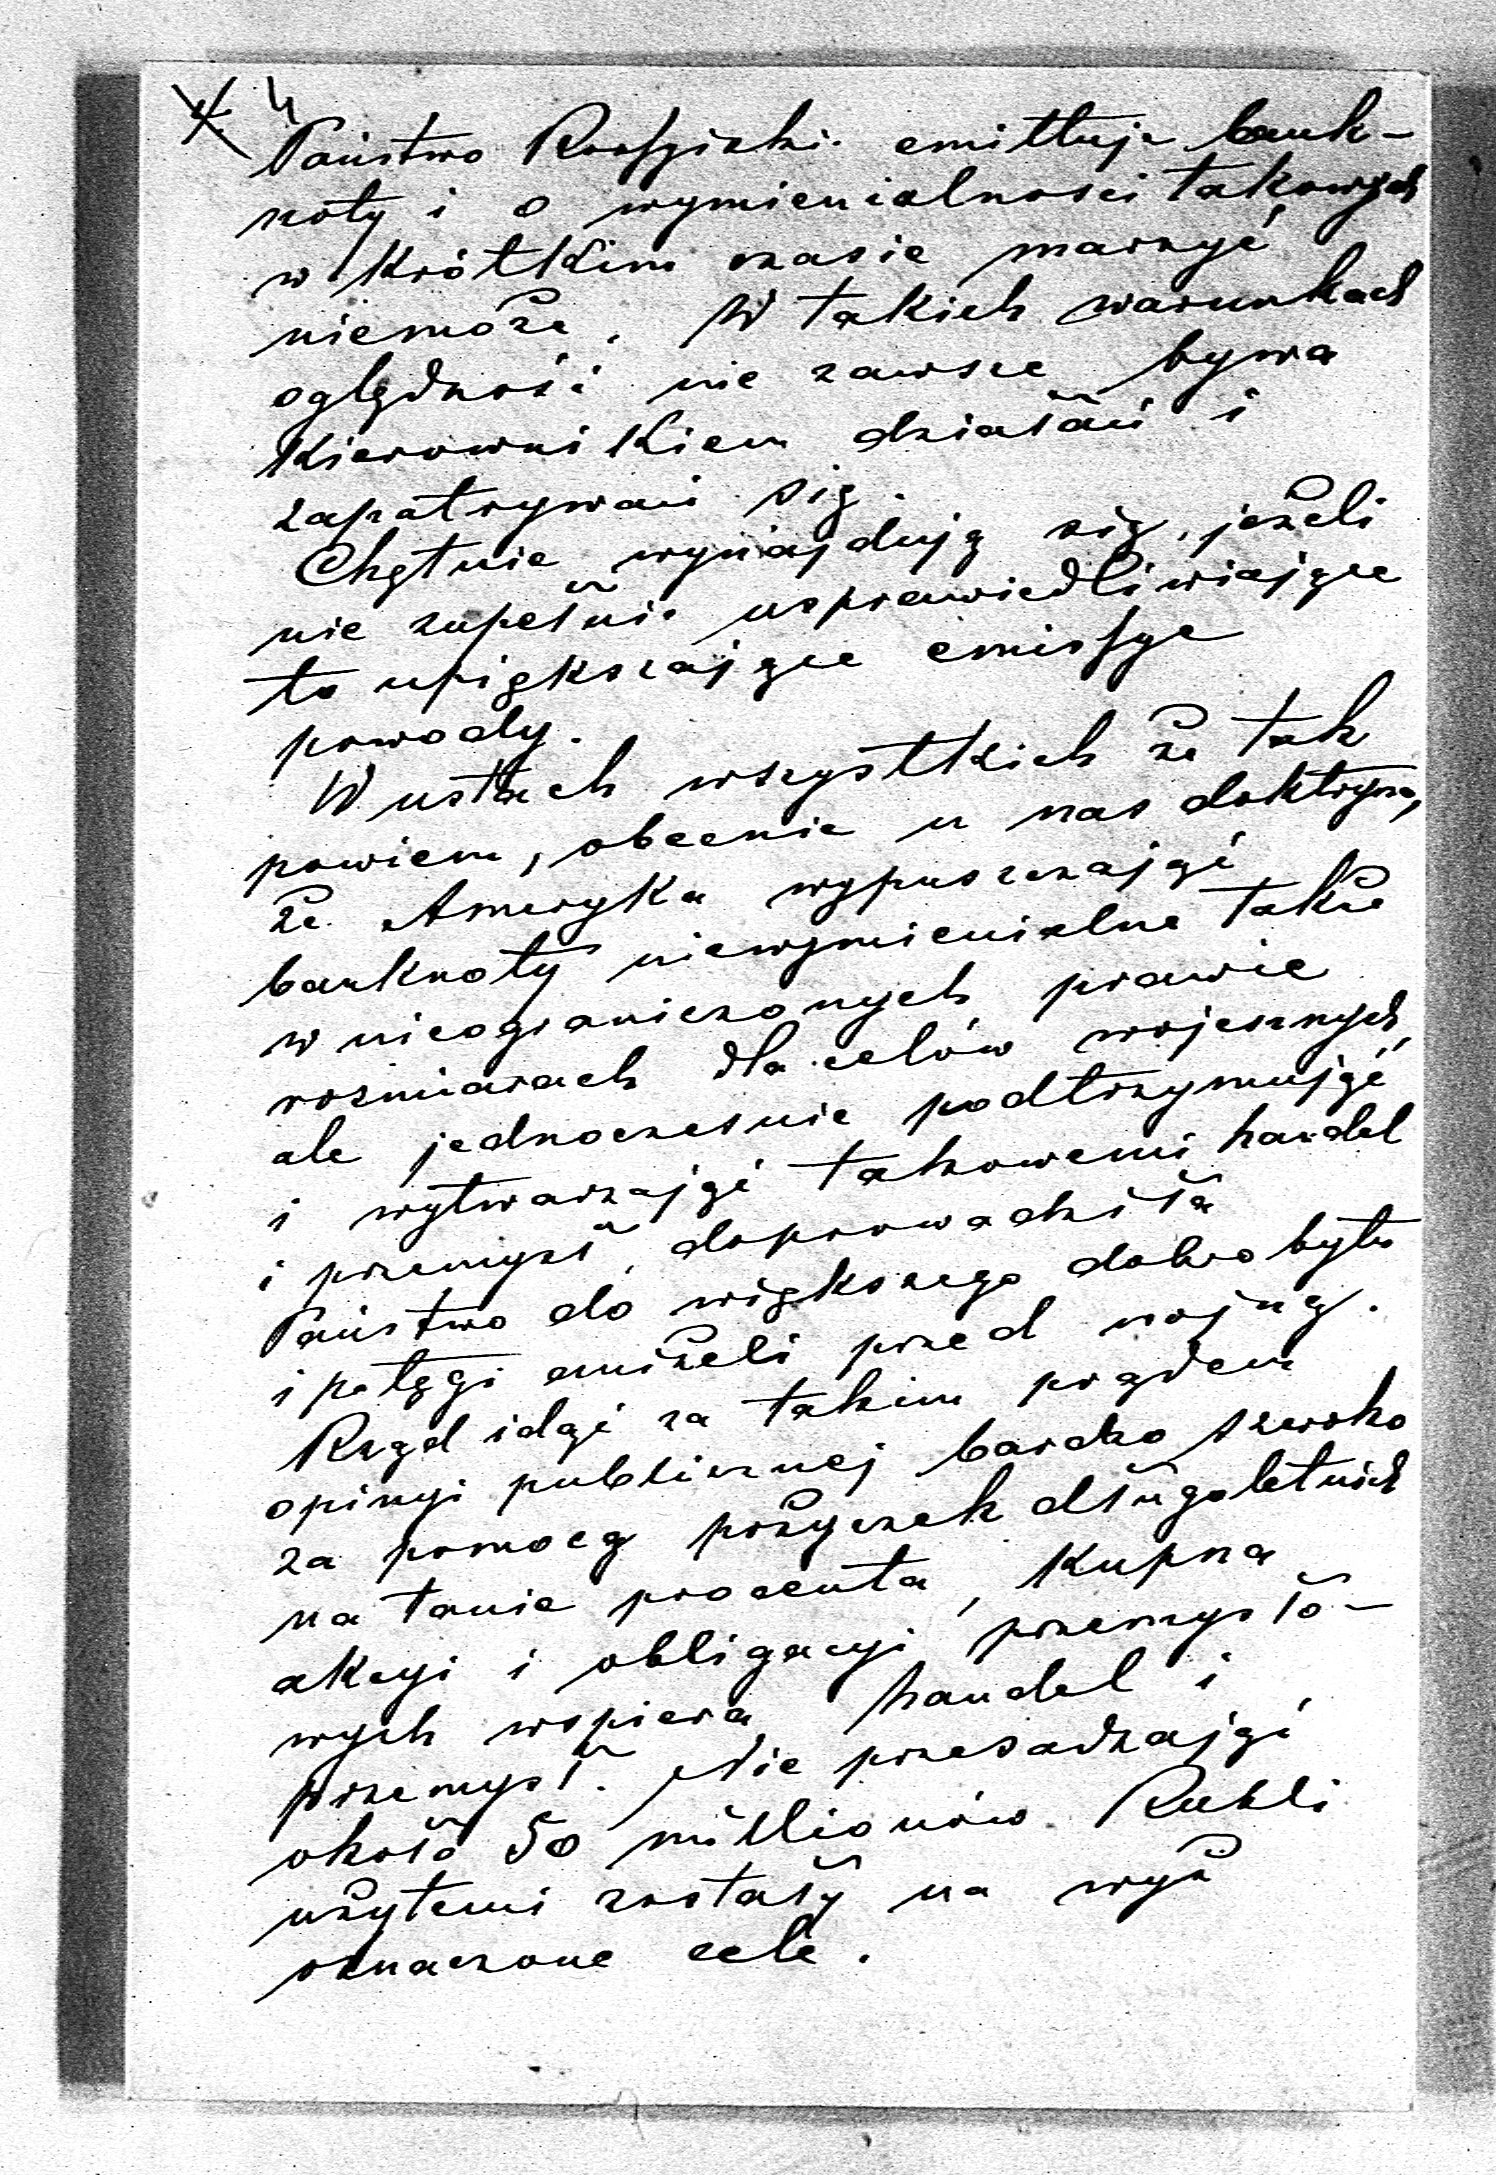 4
Państwo Rossyiski emittuje bank-
noty i o wymienialności takowych
w krótkim czasie marzyć
niemoże. W takich warunkach
oględność nie zawsze bywa
kierownikiem działań i
zapatrywań się.
Chętnie wynajdują się, jeżeli
nie zupełnie usprawiedliwiające
to upiększające emissye
powody.
W ustach wszystkich że tak
powiem, obecnie u nas doktryna,
że Ameryka wypuszczając
banknoty niewymienialne także
w nieograniczonych prawie
rozmiarach dla celów wojennych,
ale jednocześnie podtrzymując
i wytwarzając takowemi handel
i przemysł, doprowadziła
Państwo do większego dobrobytu
i potęgi aniżeli przed wojną.
Rząd idąc za takim prądem
opinyi publicznej bardzo szeroko
za pomocą pożyczek długoletnich
na tanie procenta, kupna
akcyi i obligacyi przemysło-
wych wspiera handel i
przemysł. Nie przesadzając
około 50 millionów Rubli
użytemi zostały na wyż
oznaczone cele.